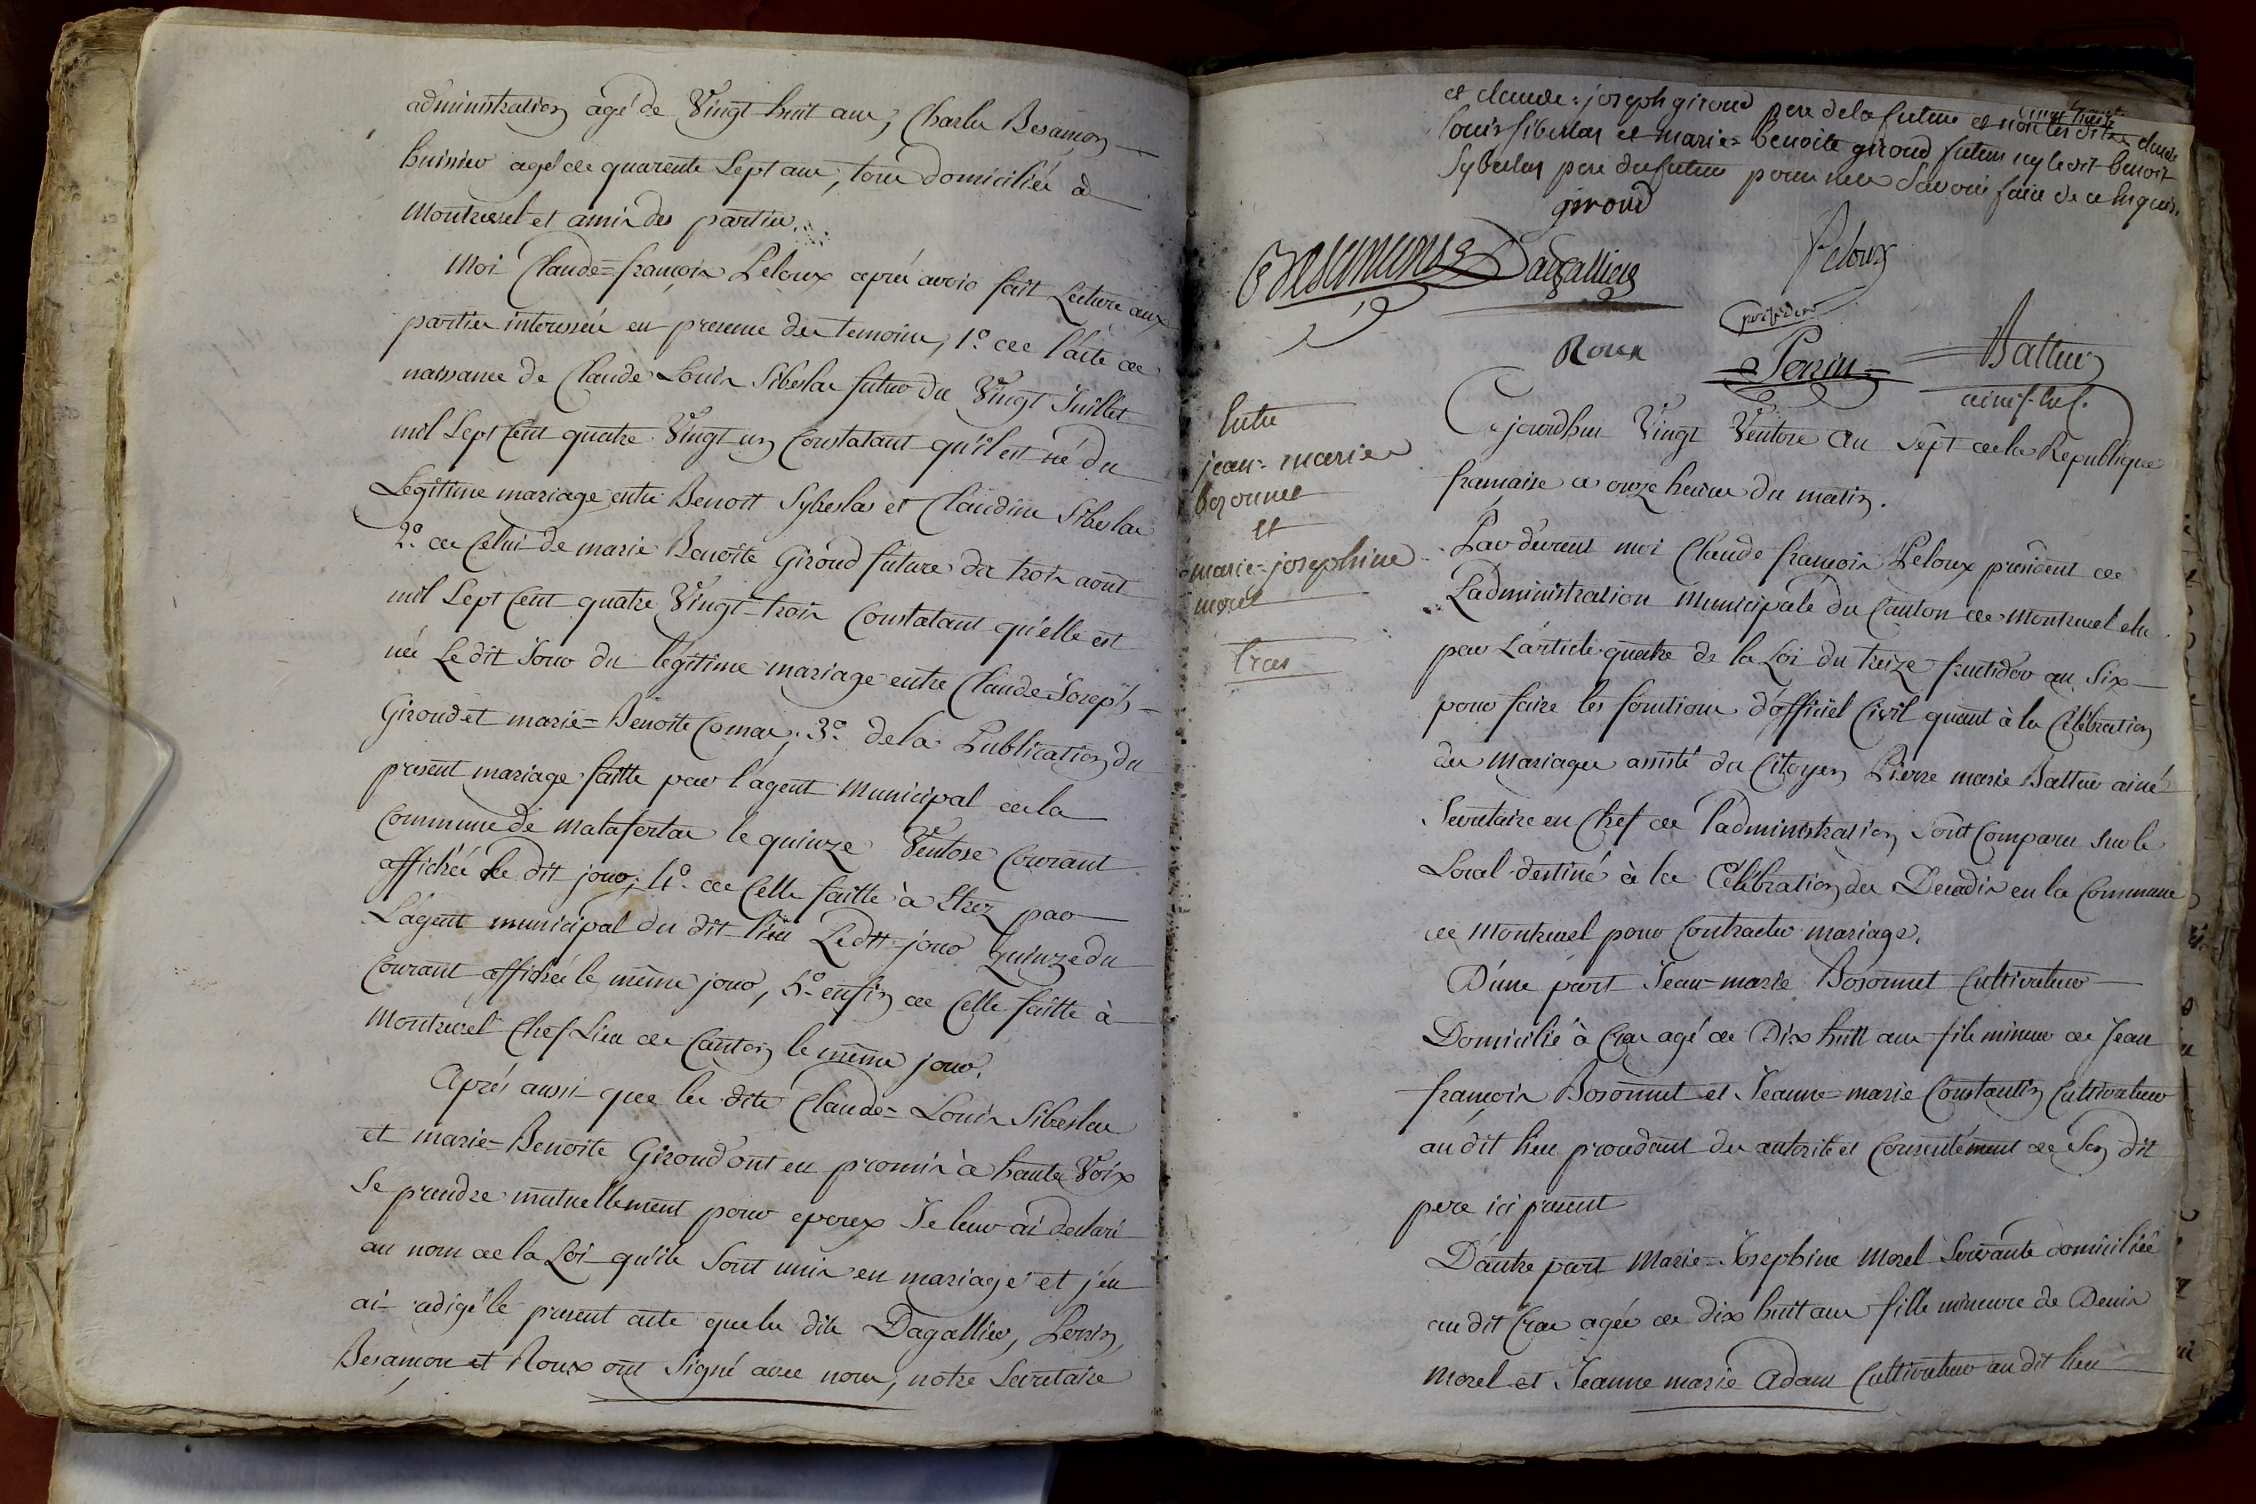 administration agé de Vingt huit ans, Charles Besançon
huissier agé de quarente Sept ans, tous domiciliés à
Montrevel et amis des parties.
Moi Claude=françois Peloux après avoir fait Lecture aux
parties interessées en presence des temoins, 1º de l'acte de
naissance de Claude Louis Sibeslas futur du Vingt Juillet
mil Sept Cent quatre Vingt un Constatant qu'il est né du
Légitime mariage entre Benoit Sybeslas et Claudine Sibeslas
2º de Celui de marie Benoîte Giroud future du trois aout
mil Sept Cent quatre Vingt-trois Constatant qu'elle est
née Le dit Jour du légitime mariage entre Claude=Joseph
Giroud et marie=Benoite Comas, 3º de la Publication du
present mariage faitte par l'agent Municipal de la
Commune de malafertas le quinze Ventose Courant
affichée Le dit jour; 4º de Celle faitte à Etrez par
L'agent municipal du dit lieu Le dit jour Quinze du
Courant affichée le même jour, 5º enfin de Celle faitte à
Montrevel Chef Lieu de Canton le même jour.
Après aussi que les dits Claude=Louis Sibeslas
et marie=Benoite Giroud ont eu promis à haute Voix
Se prendre mutuellement pour epoux Je leur ai declaré
au nom de la Loi qu'ils Sont unis en mariage et j'en
ai redigé le present acte que les dits Dagallier, Perrin,
Besançon et Roux ont Signé avec nous, notre Secretaire
et claude=joseph giroud pere de la future et non les dits claude
louis sibeslas et marie=benoite giroud futurs ny le dit benoit
Sybeslas pere du futur pour ne Savoir faire de ce enquis.
giroud
Besançon Dagallier
Peloux
president
Roux
Perrin
Battur
ainé S. en ch.
Entre
jean=marie
bozonnet
et
marie=josephine
morel
Cras
Cejourdhui Vingt Ventose an Sept de la Republique
francaise a onze heures du matin.
Par devant moi Claude françois Peloux president de
L'administration Municipale du Canton de Montrevel elu
par L'article quatre de la Loi du treize fructidor an Six
pour faire les fonctions d'officiel Civil quant à la Célébration
des Mariages assisté du Citoyen Pierre marie Battur ainé
Secretaire en Chef de l'administration Sont Comparus Sur le
Local destiné à la Célébration des Decadis en la Commune
de Montrevel pour Contracter mariage.
D'une part Jean=marie Bozonnet Cultivateur
Domicilié à Cras agé de Dix huit ans fils mineur de Jean
françois Bozonnet et Jeanne=marie Constantin Cultivateurs
au dit lieu procedant de autorité et Consentement de Son dit
pere ici present
D'autre part Marie=Josephine Morel Servante domiciliée
au dit Cras agée de dix huit ans fille mineure de Denis
Morel et Jeanne marie Adam Cultivateurs au dit lieu